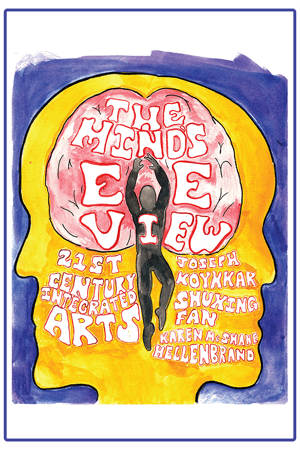 THE
MINDS
E E
VIEW
21ST
CENTURY
INTEGRATED
ARTS
JOSEPH
KOYKKAR
SHUXING
FAN
KAREN McSHANE
HELLENBRAND